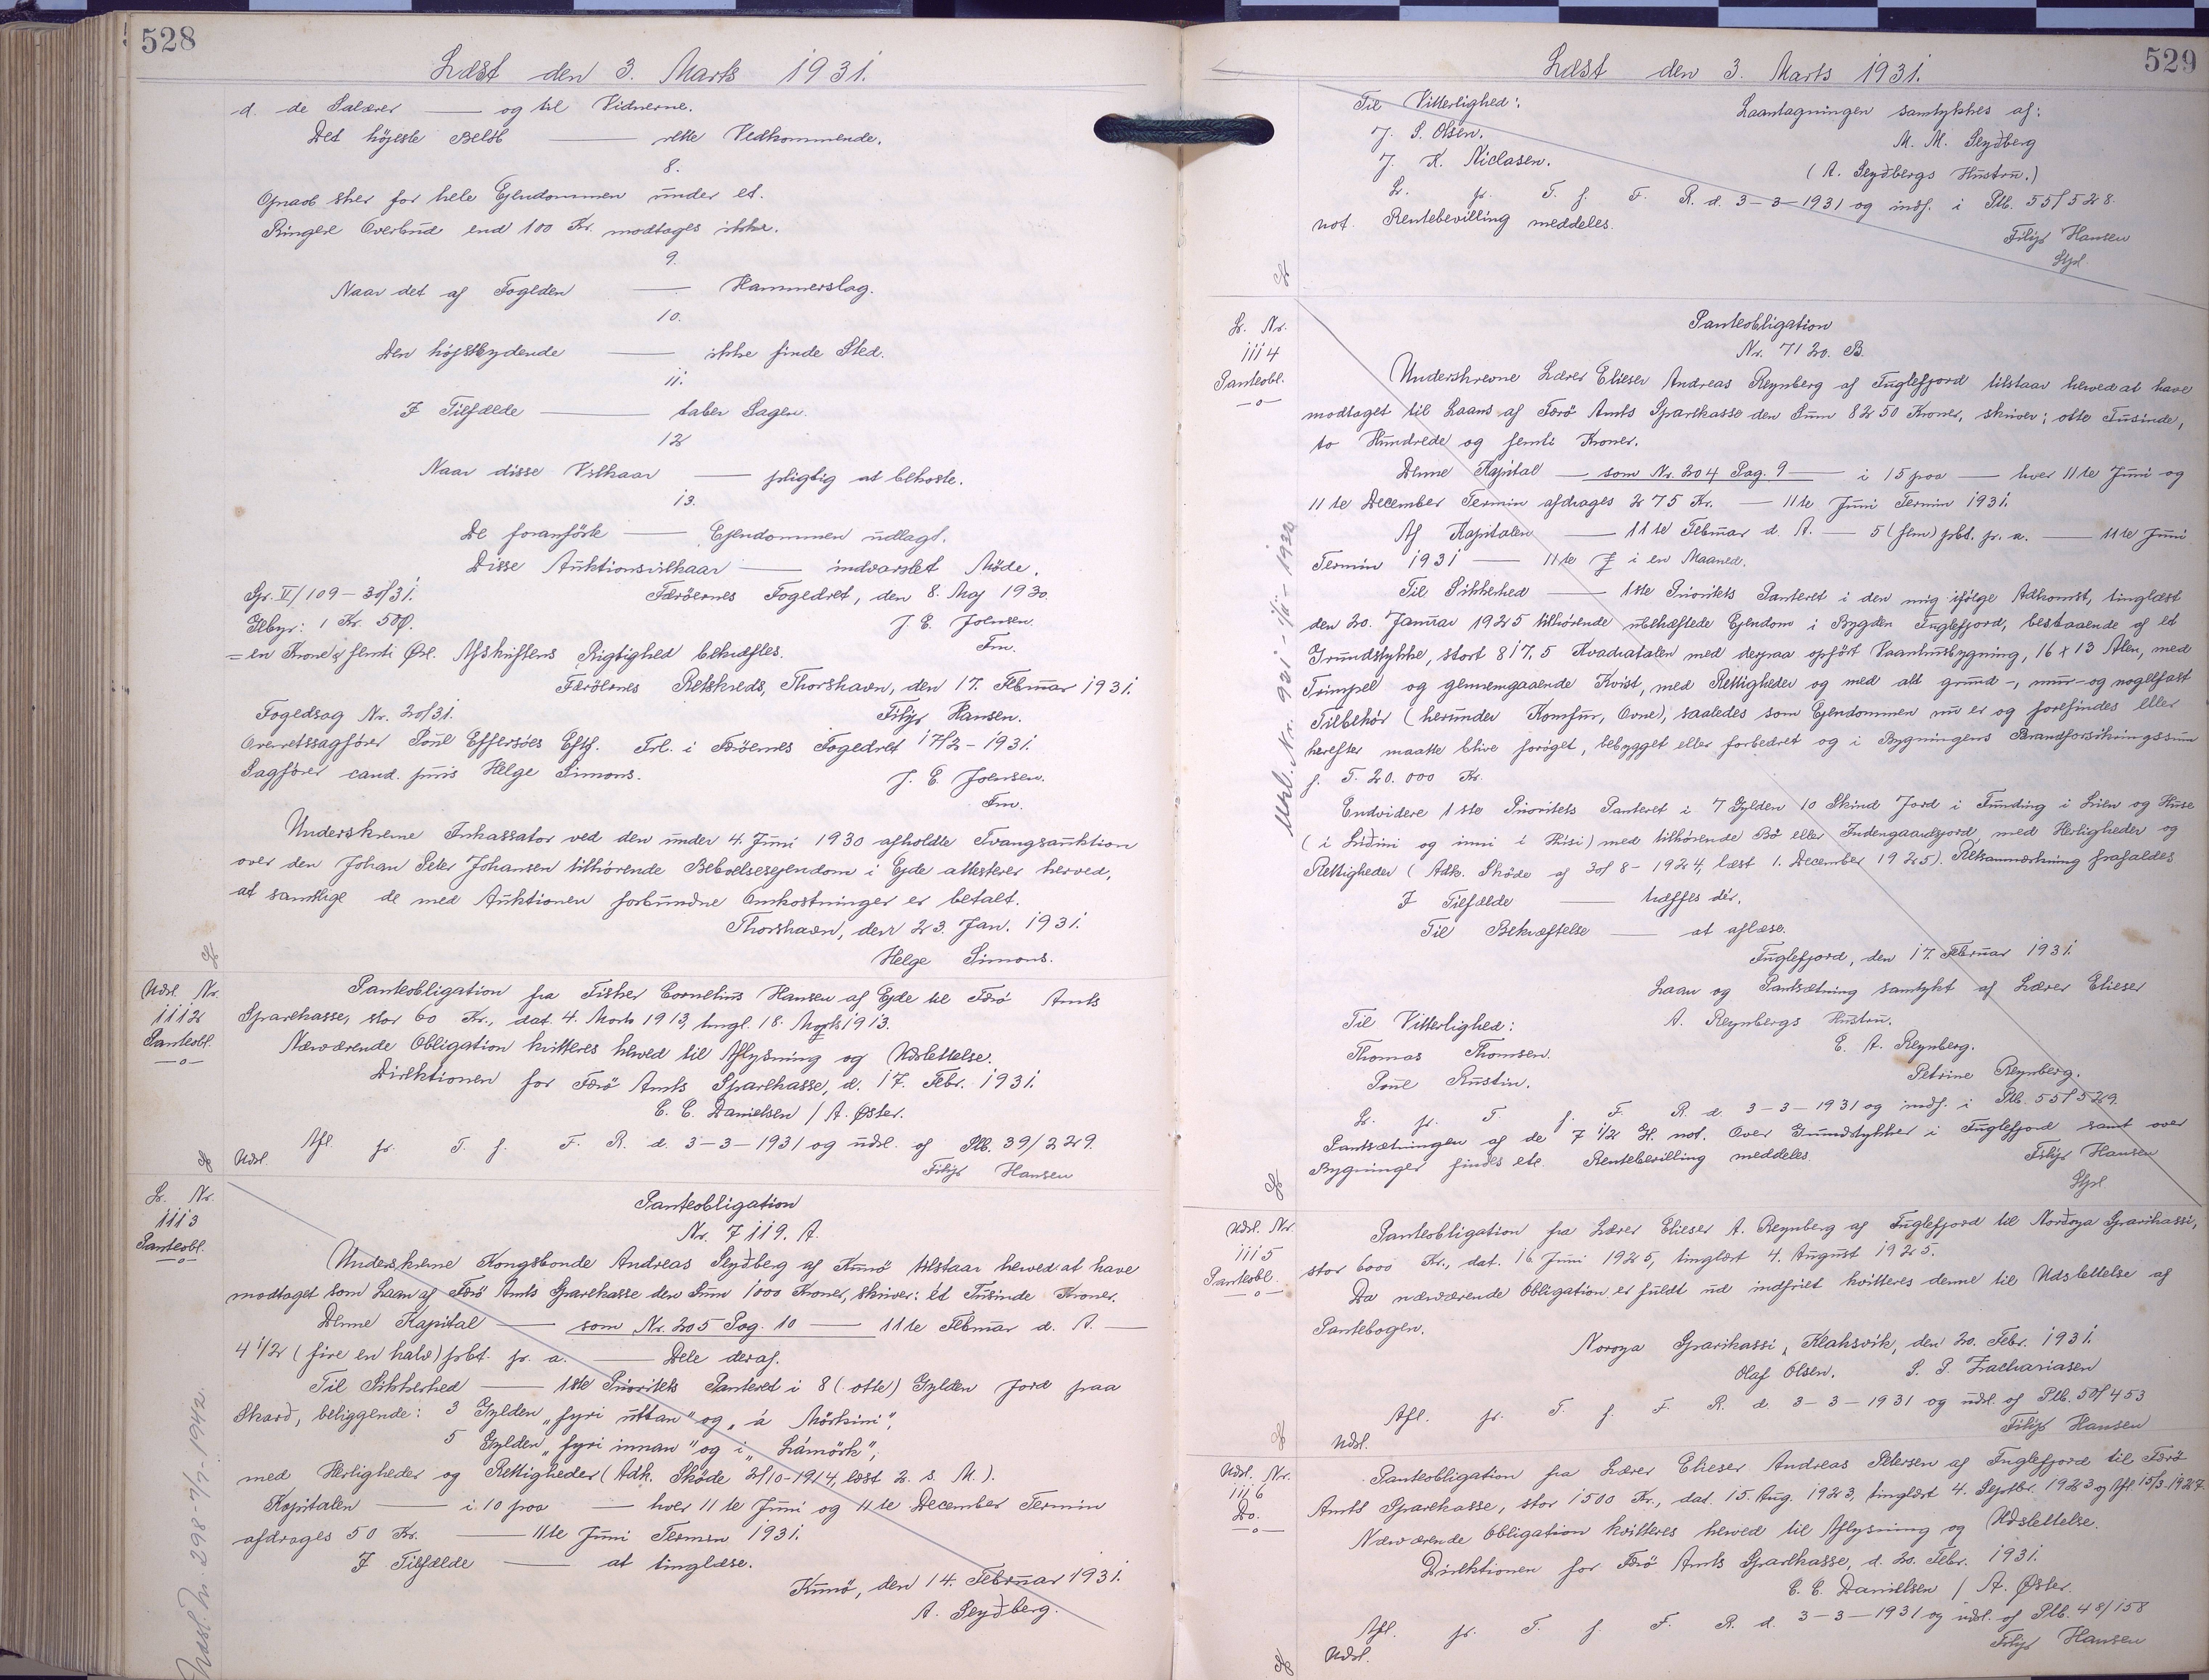 528
Læst den 3. Marts 1931.
d. de Salærer — og til Vidnerne.
Det højeste Beløb — rette Vedkommende.
8.
Opraab sker for hele Ejendommen under et.
Ringere Overbud end 100 Kr. modtages ikke.
9.
Naar det af Fogden — Hammerslag.
10.
Den højstbydende — ikke finde Sted.
11.
I Tilfælde — taber Sagen.
12
Naar disse Vilkaar — pligtig at bekoste.
13.
De foranførte — Ejendommen udlagt.
Disse Auktionsvilkaar — indvarslet Møde.
Færøernes Fogedret, den 8. Maj 1930.
Gr. II/109 – 30/31.
J. E. Joensen.
Gebyr: 1 Kr. 50 Ø.
Fm.
= en Krone & femti Øre. Afskriftens Rigtighed bekræftes.
Færøernes Retskreds, Thorshavn, den 17. Februar 1931.
Filip Hansen.
Fogedsag Nr. 20/31.
Overretssagfører Poul Effersøes Eftf. Frl. i Færøernes Fogedret 17/2 – 1931.
Sagfører cand. juris Helge Simons.
J. E. Joensen.
Fm.
Underskrevne Inkassator ved den under 4. Juni 1930 afholdte Tvangsauktion
over den Johan Peter Johansen tilhørende Beboelsesejendom i Ejde attesterer herved,
at samtlige de med Auktionen forbundne Omkostninger er betalt.
Thorshavn, den 23. Jan. 1931.
Helge Simons.
Udsl. Nr.
1112
Panteobl.
—o—
Panteobligation fra Fisker Cornelius Hansen af Ejde til Færø Amts
Sparekasse, stor 60 Kr., dat. 4. Marts 1913, tingl. 18. Marts 1913.
Nærværende Obligation kvitteres herved til Aflysning og Udslettelse.
Direktionen for Færø Amts Sparekasse, d. 17. Febr. 1931.
C. C. Danielsen / A. Øster.
Afl. pr. T. f. F. R. d. 3–3–1931 og udsl. af Ptb. 39/229.
Udsl.
Filip Hansen
Lr. Nr.
1113
Panteobl.
—o—
Panteobligation
Nr. 7119. A.
Underskrevne Kongsbonde Andreas Seyðberg af Kunø tilstaar herved at have
modtaget som Laan af Færø Amts Sparekasse den Sum 1000 Kroner, skriver: ét Tusinde Kroner.
Denne Kapital — som Nr. 205 Pag. 10 — 11te Februar d. A. —
4 1/2 (fire en halv) pCt. pr. a. — Dele deraf.
Til Sikkerhed — 1ste Prioritets Panteret i 8 (otte) Gylden Jord paa
Skarð, beliggende: 3 Gylden „fyri uttan" og „á Mörkini",
5 Gylden „fyri innan" og i „Lámörk",
med Herligheder og Rettigheder (Adk. Skøde 2/10–1914, læst 2. s. M.).
Kapitalen — i 10 paa — hver 11te Juni og 11te December Termin
afdrages 50 Kr. — 11te Juni Termin 1931.
I Tilfælde — at tinglæse.
Kunø, den 14. Februar 1931.
A. Seyðberg.
Udsl. Nr. 298-7/7-1942.
529
Læst den 3. Marts 1931.
Til Vitterlighed: Laantagningen samtykkes af:
J. S. Olsen. M. M. Seyðberg
J. K. Niclasen. (A. Seyðbergs Hustru.)
Lr. pr. T. f. F. R. d. 3–3–1931 og indf. i Ptb. 55/528.
not. Rentebevilling meddeles.
Filip Hansen
Lr. Nr.
1114
Panteobl.
—o—
Panteobligation
Nr. 7120. B.
Underskrevne Lærer Elieser Andreas Reynberg af Fuglefjord tilstaar herved at have
modtaget til Laans af Færø Amts Sparekasse den Sum 8250 Kroner, skriver: otte Tusinde,
to Hundrede og femti Kroner.
Denne Kapital — som Nr. 204 Pag. 9 — i 15 paa — hver 11te Juni og
11te December Termin afdrages 275 Kr. — 11te Juni Termin 1931.
Af Kapitalen — 11te Februar d. A. — 5 (fem) pCt. pr. a. — 11te Juni
Termin 1931 — 11te J i en Maaned.
Til Sikkerhed — 1ste Prioritets Panteret i den mig ifølge Adkomst, tinglæst
den 20. Januar 1925 tilhørende ubehæftede Ejendom i Bygden Fuglefjord, bestaaende af et
Grundstykke, stort 817,5 Kvadratalen med derpaa opført Vaaningsbygning, 16 x 13 Alen, med
Trimpel og gennemgaaende Kvist, med Rettigheder og med alt grund-, mur- og nagelfast
Tilbehør (herunder Komfur, Ovne), saaledes som Ejendommen nu er og forefindes eller
herefter maatte blive forøget, bebygget eller forbedret og i Bygningens Brandforsikringssum
p. T. 20.000 Kr.
Endvidere 1ste Prioritets Panteret i 7 Gylden 10 Skind Jord i Funding i Lien og Huse
(i Líðini og inni í Húsi) med tilhørende Bø eller Indengaardsjord, med Herligheder og
Rettigheder (Adk. Skøde af 30/8–1924, læst 1. December 1925). Retsanmærkning frafaldes
I Tilfælde — træffes dér.
Til Bekræftelse — at aflæse.
Fuglefjord, den 17. Februar 1931.
Laan og Pantsætning samtykt af Lærer Elieser
Til Vitterlighed: A. Reynbergs Hustru.
Thomas Thomsen. E. A. Reynberg.
Poul Rustin. Petrine Reynberg.
Lr. pr. T. f. F. R. d. 3–3–1931 og indf. i Ptb. 55/529.
Pantsætningen af de 7 1/2 Gl. not. Over Grundstykket i Fuglefjord samt over
Bygninger findes etc. Rentebevilling meddeles.
Filip Hansen
Udsl. Nr. 921 – 1/11 – 1932
Udsl. Nr.
1115
Panteobl.
—o—
Panteobligation fra Lærer Elieser A. Reynberg af Fuglefjord til Norðoya Sparikassi,
stor 6000 Kr., dat. 16. Juni 1925, tinglæst 4. August 1925.
Da nærværende Obligation er fuldt ud indfriet kvitteres denne til Udslettelse af
Pantebogen.
Noroya Sparikassi, Klaksvik, den 20. Febr. 1931.
Olaf Olsen. S. P. Zachariasen
Afl. pr. T. f. F. R. d. 3–3–1931 og udsl. af Ptb. 50/453
Udsl.
Filip Hansen
Udsl. Nr.
1116
Do.
—o—
Panteobligation fra Lærer Elieser Andreas Petersen af Fuglefjord til Færø
Amts Sparekasse, stor 1500 Kr., dat. 15. Aug. 1923, tinglæst 4. Septbr. 1923 og Afl 15/3.1927.
Nærværende Obligation kvitteres herved til Aflysning og Udslettelse.
Direktionen for Færø Amts Sparekasse, d. 20. Febr. 1931.
C. C. Danielsen / A. Øster.
Afl. pr. T. f. F. R. d. 3–3–1931 og udsl. af Ptb. 48/158
Udsl.
Filip Hansen